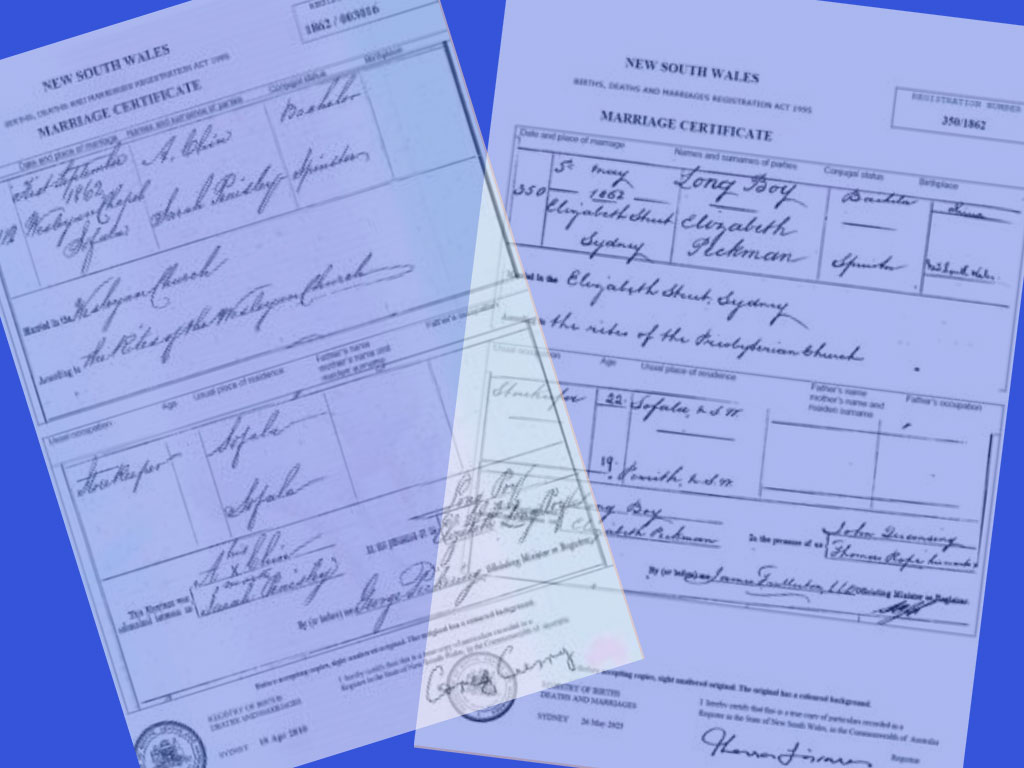 1862 / 003016
NEW SOUTH WALES
BIRTHS, DEATHS AND MARRIAGES REGISTRATION ACT 1995
MARRIAGE CERTIFICATE
Date and place of marriage Names and surnames of parties Conjugal status Birthplace
First September A. Chin Bachelor
1862
Wesleyan Chapel Sarah Paisley Spinster
Sofala
Married in the Wesleyan Church
According to the Rites of the Wesleyan Church
Usual occupation Age Usual place of residence Father's name Father's occupation
mother's name and
maiden surname
Storekeeper Sofala
Sofala
This Marriage was A his x mark Chin In the presence of us Long Boy
solemnized between us Sarah Paisley Elizabeth Long Boy
By (or before) me George Pickering Officiating Minister or Registrar
Before accepting copies, sight unaltered original. The original has a coloured background.
REGISTRY OF BIRTHS
DEATHS AND MARRIAGES
I hereby certify that this is a true copy of particulars recorded in a
Register in the State of New South Wales, in the Commonwealth of Australia
SYDNEY 19 Apr 2010
NEW SOUTH WALES
BIRTHS, DEATHS AND MARRIAGES REGISTRATION ACT 1995
REGISTRATION NUMBER
350/1862
MARRIAGE CERTIFICATE
Date and place of marriage Names and surnames of parties Conjugal status Birthplace
350 5th May Long Boy
1862
Elizabeth Street Elizabeth
Sydney Pickman Spinster New South Wales
Married in the Elizabeth Street, Sydney
According to the rites of the Presbyterian Church
Usual occupation Age Usual place of residence Father's name Father's occupation
mother's name and
maiden surname
Storekeeper 22 Sofala, N.S.W.
19 Penrith, N.S.W.
Long Boy In the presence of us John
Elizabeth Pickman Thomas
By (or before) me James Fullerton, LLD Officiating Minister or Registrar
Before accepting copies, sight unaltered original. The original has a coloured background.
REGISTRY OF BIRTHS
DEATHS AND MARRIAGES
I hereby certify that this is a true copy of particulars recorded in a
Register in the State of New South Wales, in the Commonwealth of Australia
SYDNEY 26 May 2025
Registrar